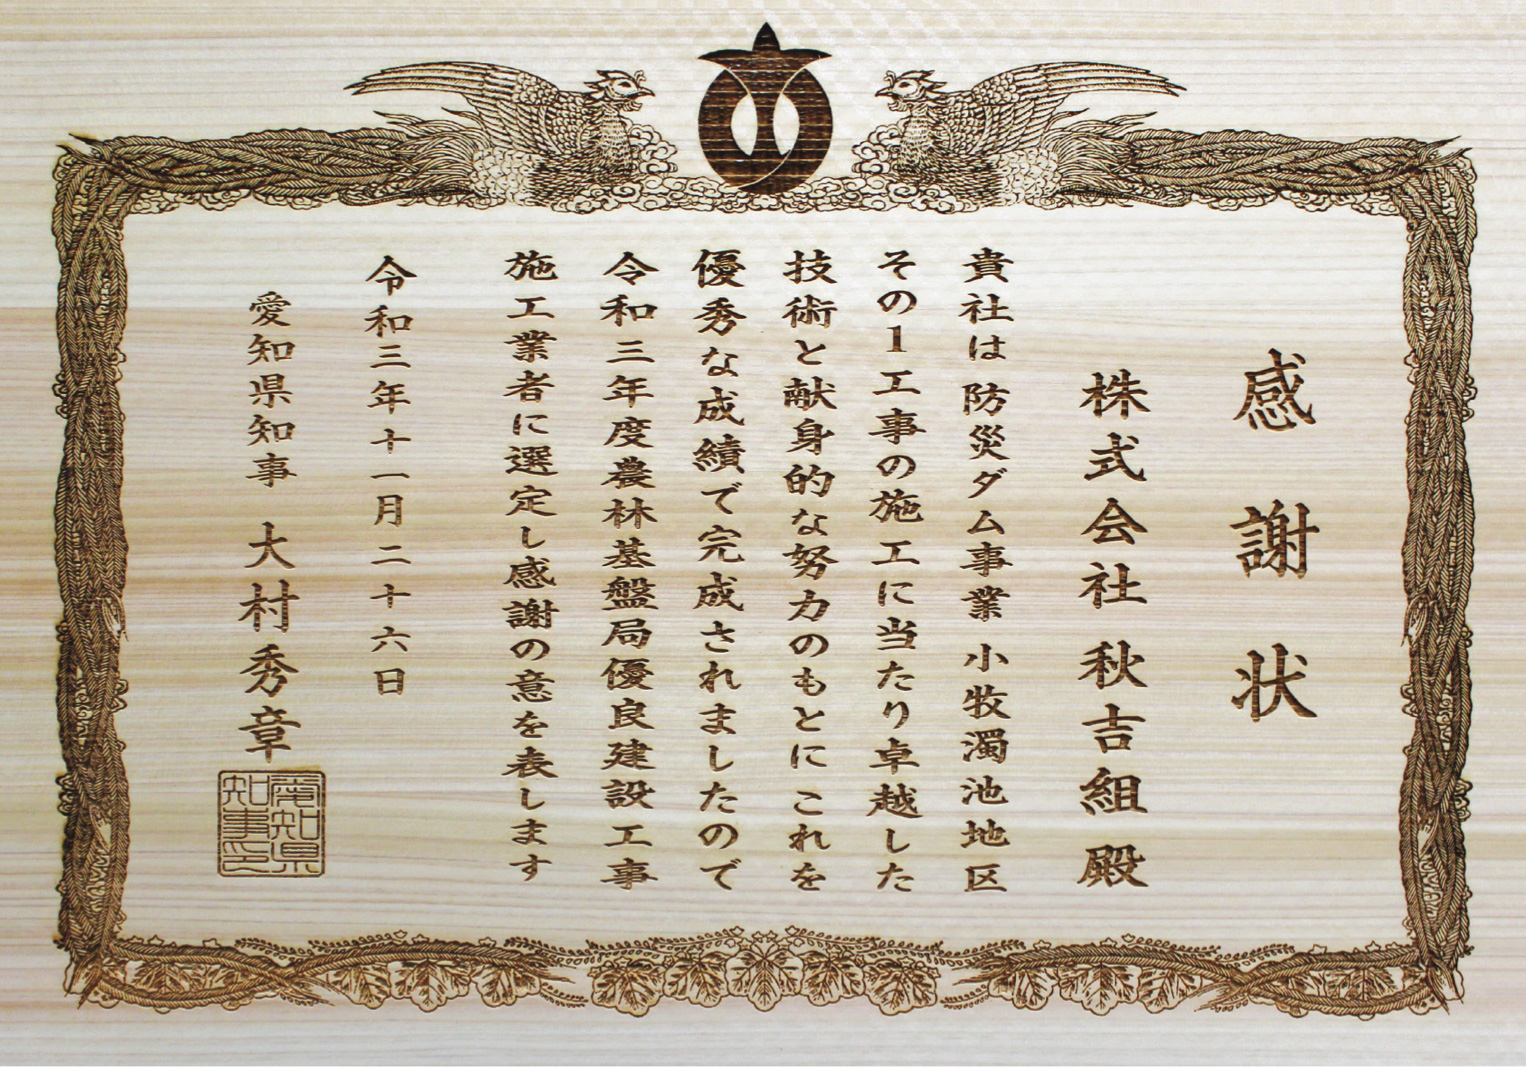 感謝状
株式会社 秋吉組 殿
貴社は 防災ダム事業 小牧濁池地区
その1工事の施工に当たり卓越した
技術と献身的な努力のもとに これを
優秀な成績で完成されましたので
令和三年度農林基盤局優良建設工事
施工業者に選定し感謝の意を表します
令和三年十一月二十六日
愛知県知事 大村秀章
愛知県
知事印